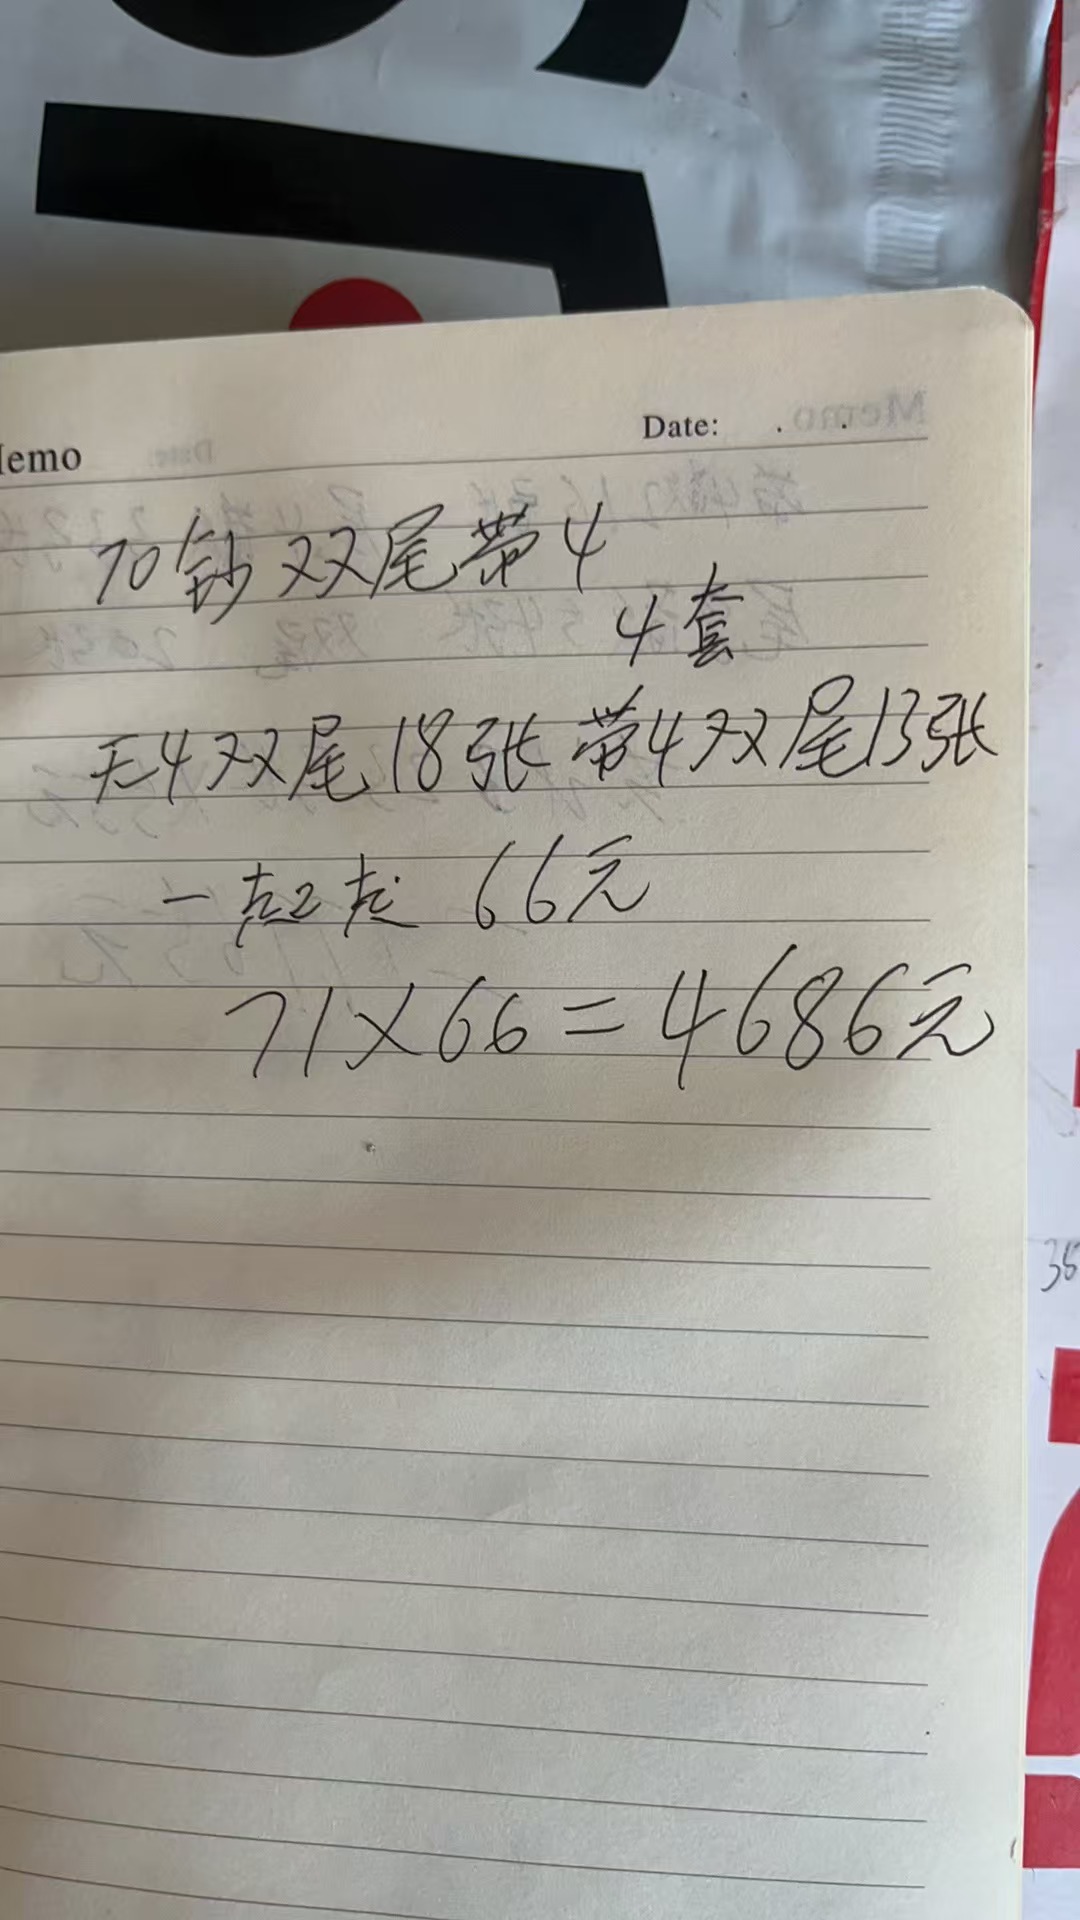 emo
Date:
70钞双尾带4
4套
无4双尾18张带4双尾13张
一起 66元
71×66=4686元